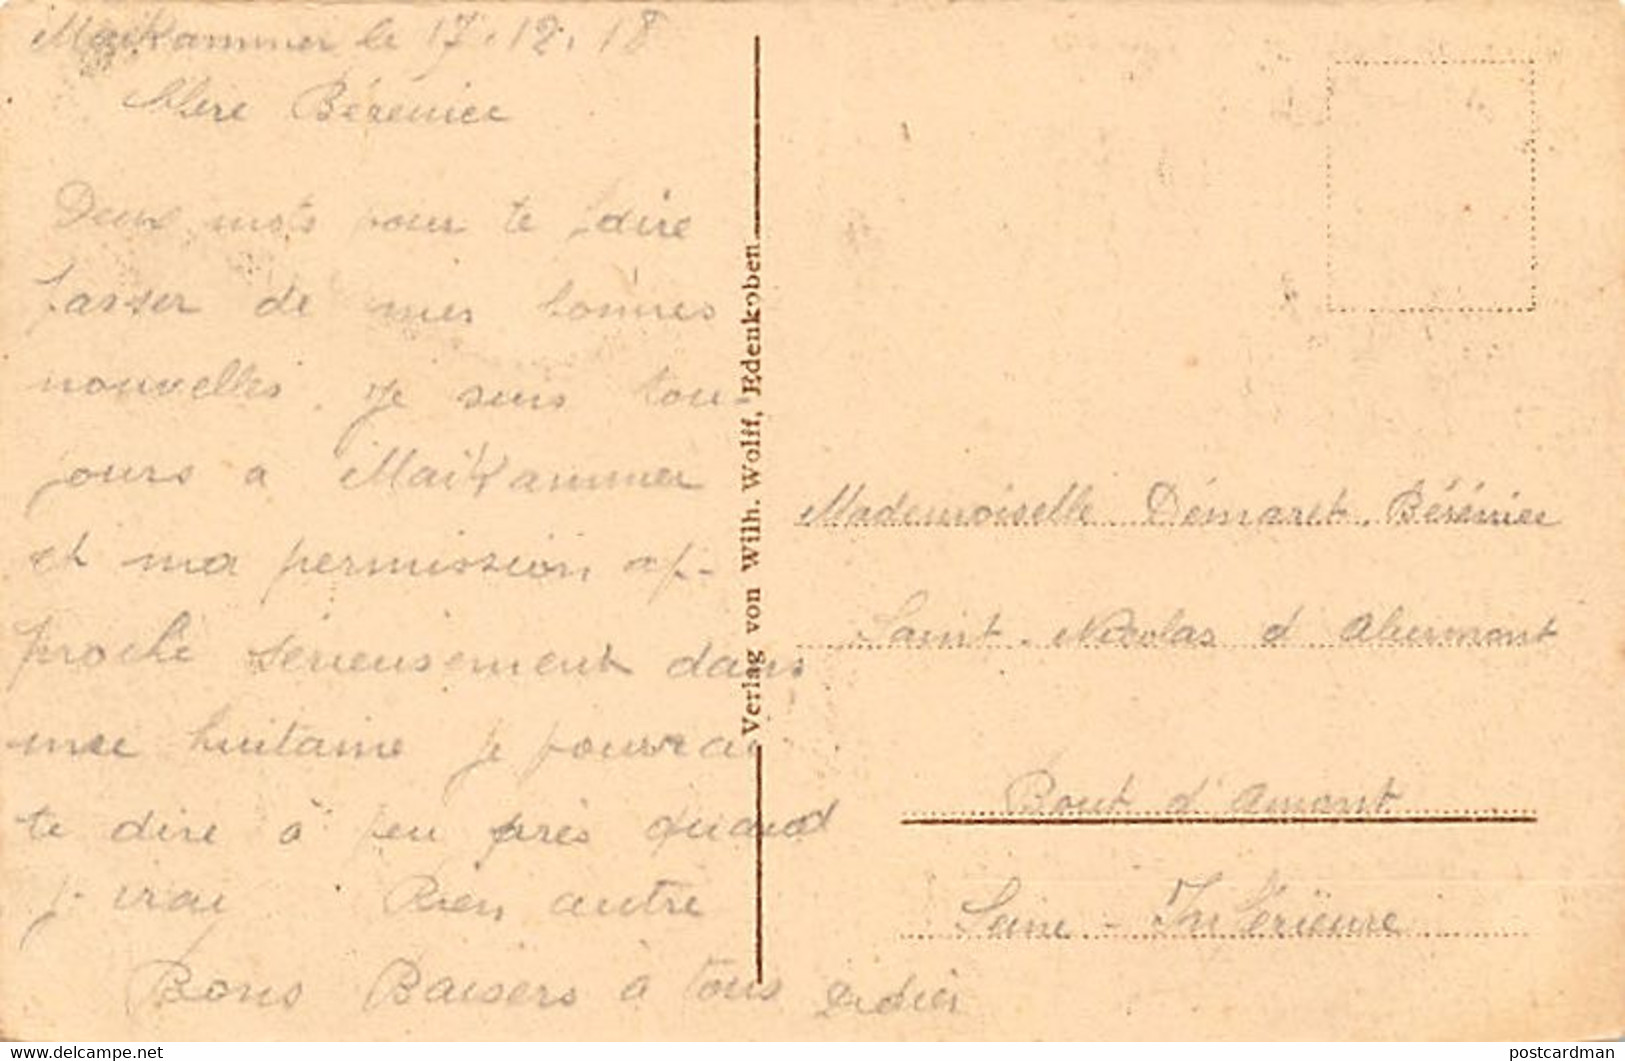 Maikammer le 17.12.18
Chere Bérenice
Deux mots pour te faire
passer de mes bonnes
nouvelles. Je suis tou-
jours a Maikammer
et ma permission ap-
proche sérieusement dans
une huitaine je pourrai
te dire à peu près quand
j irai Rien autre
Bons Baisers à tous
Verlag von Wilh. Wolff, Edenkoben.
Mademoiselle Démaret Bérénice
Saint Nicolas d Aliermont
Bout d'Amont
Seine-Inférieure
postcardman